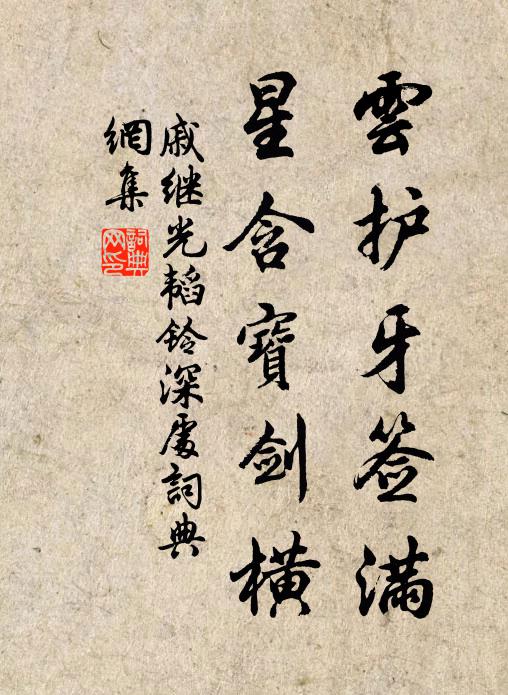 雲护牙签满
星含寶剑橫
戚继光韬钤深處詞典
網集
詞典
网印